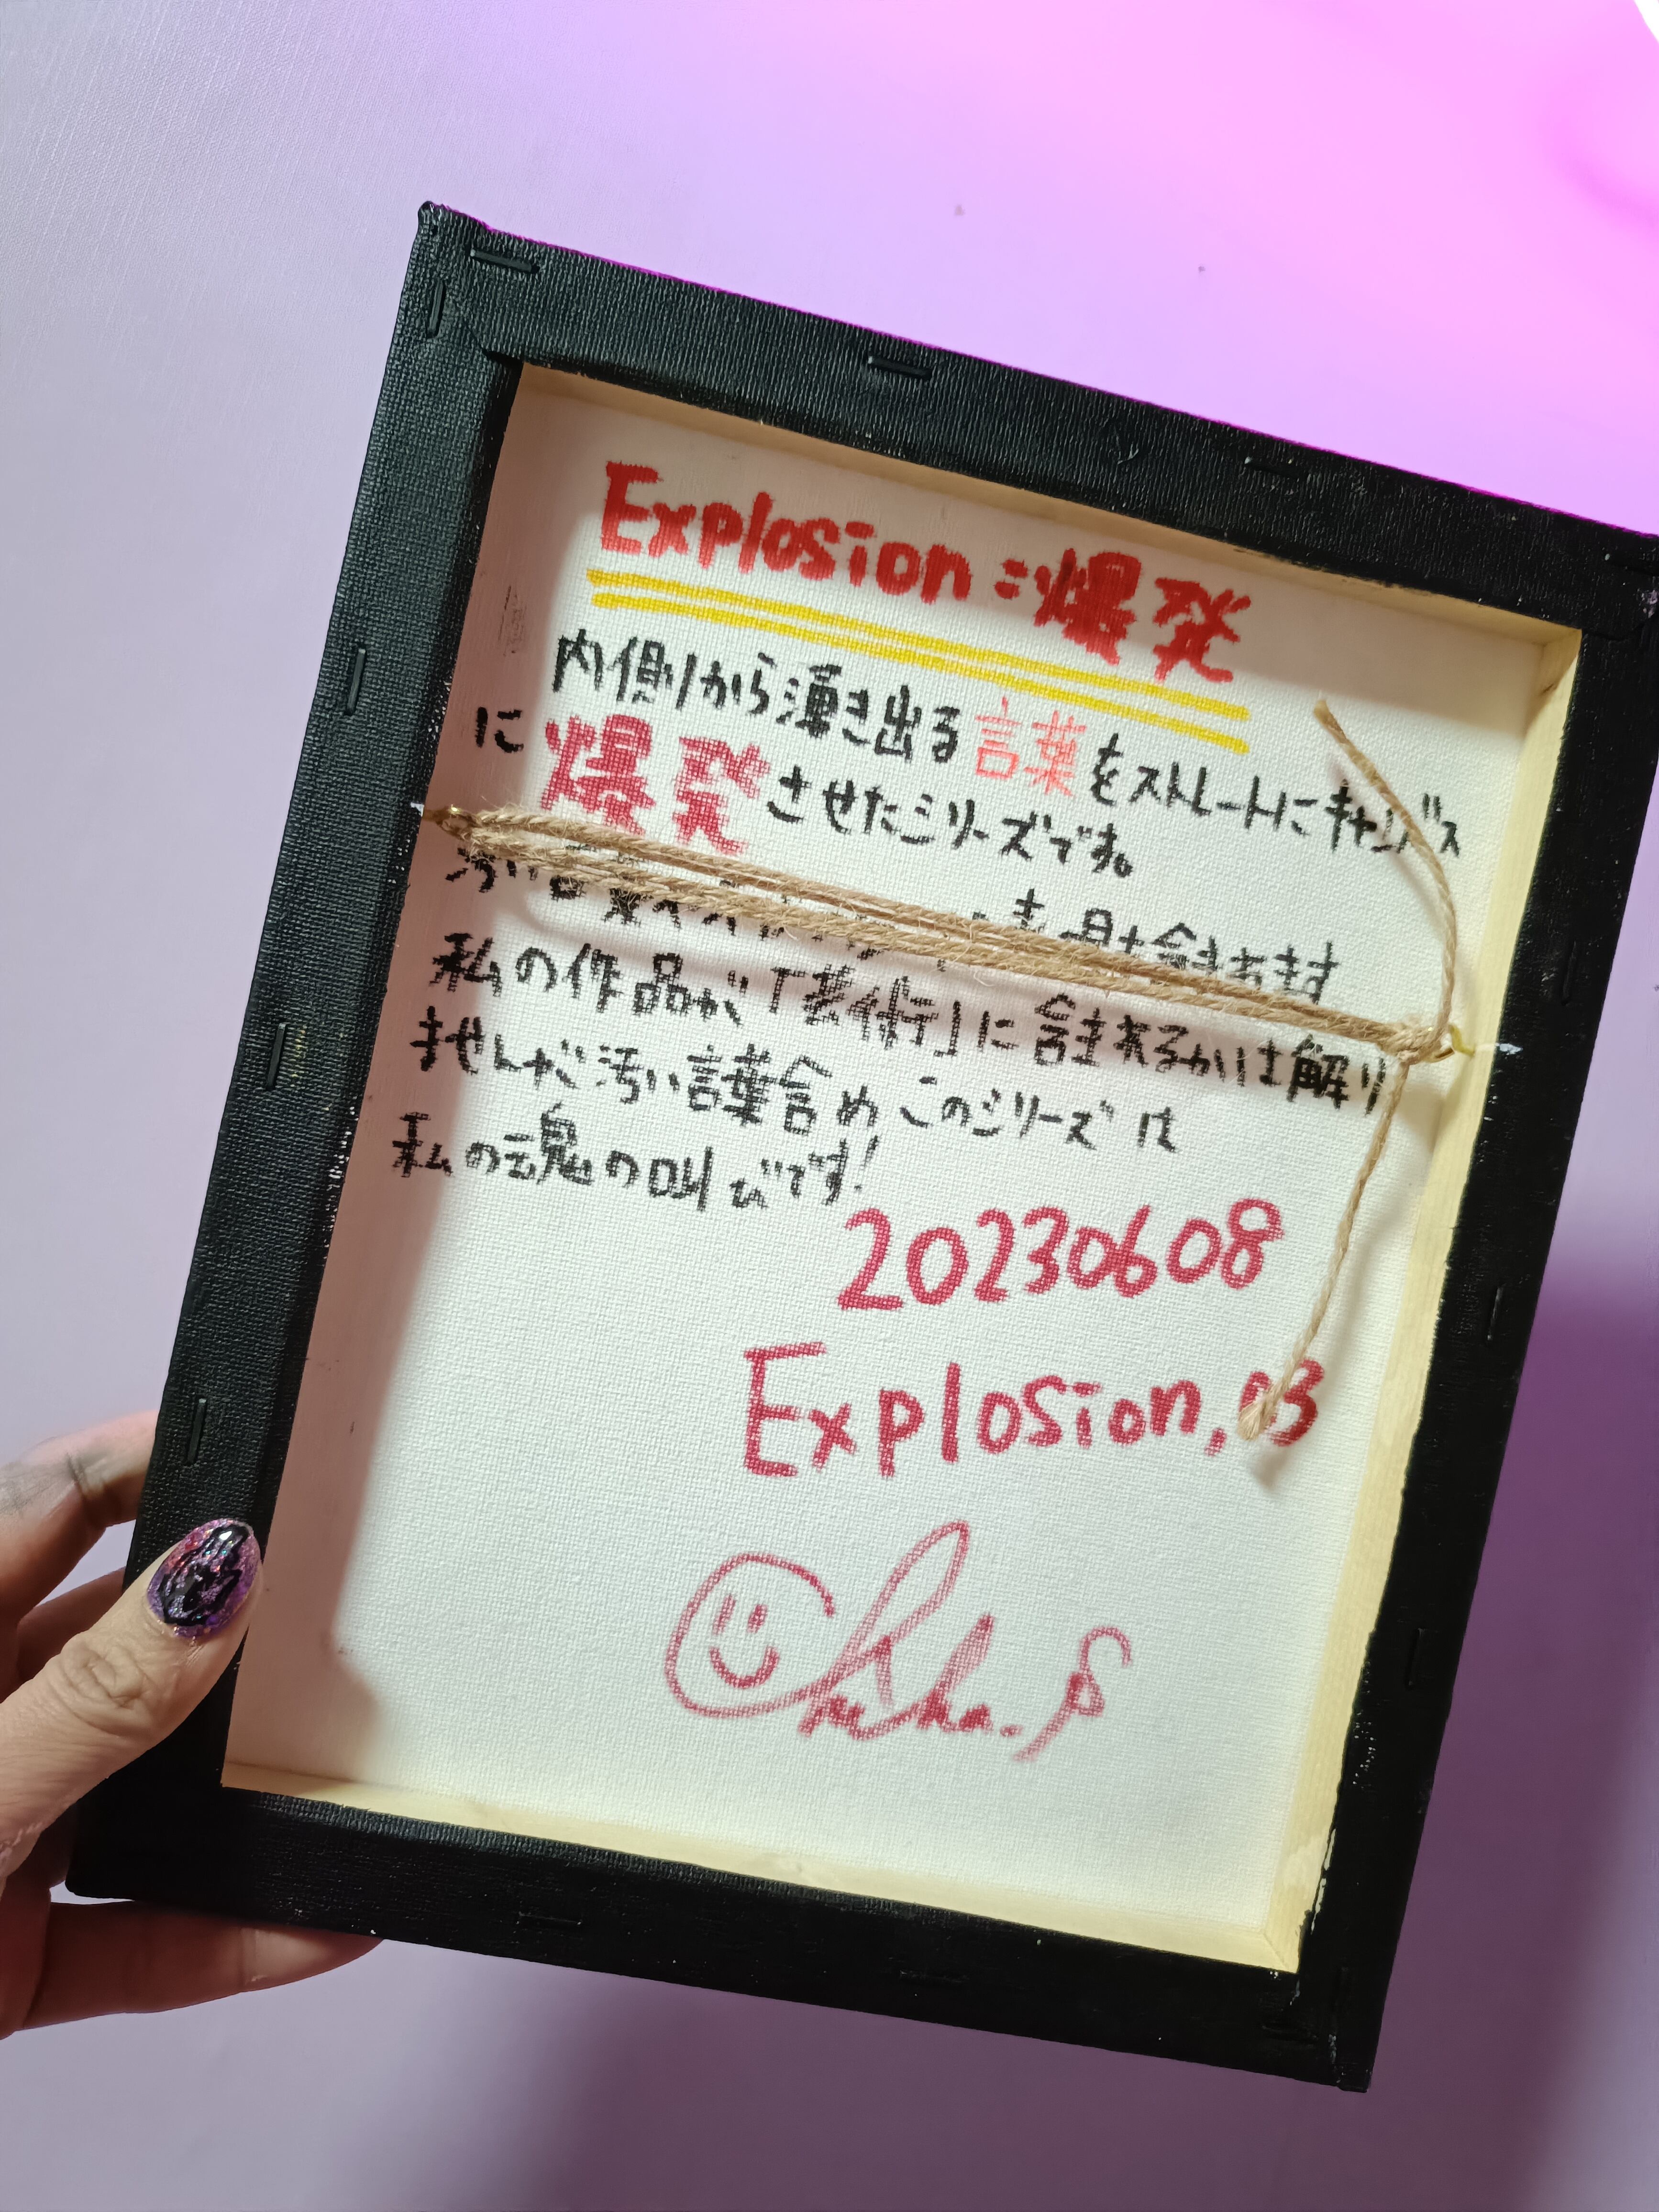 Explosion:爆発
内側から湧き出る言葉をストレートにキャンバス
に爆発させたシリーズです。
汚い言葉や
私の作品が「芸術」に含まれるかは解り
ませんが汚い言葉含めこのシリーズは
私の魂の叫びです!
20230608
Explosion, 03